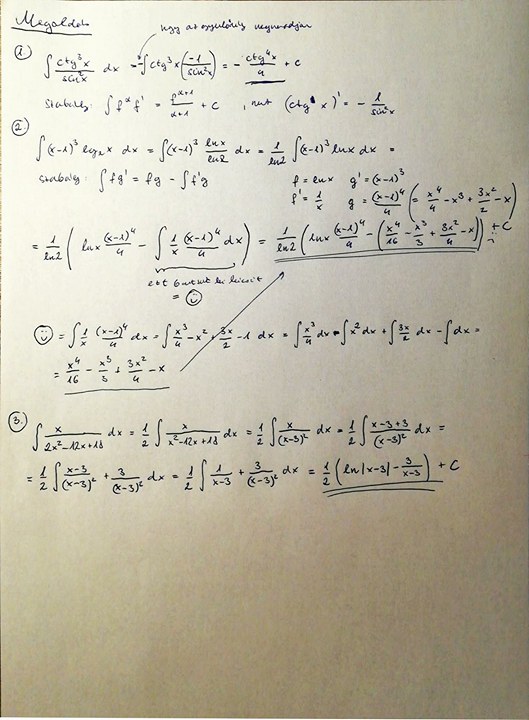 Megoldás
hogy az egyenlőség megmaradjon
1. ∫ ctg³x/sin²x dx = -∫ctg³x(-1/sin²x) = - ctg⁴x/4 + c
szabály: ∫f^α f' = f^(α+1)/(α+1) + c , mert (ctg x)' = -1/sin²x
2.
∫(x-1)³ log₂x dx = ∫(x-1)³ lnx/ln2 dx = 1/ln2 ∫(x-1)³ lnx dx =
szabály: ∫fg' = fg - ∫f'g f = lnx g' = (x-1)³
f' = 1/x g = (x-1)⁴/4 (= x⁴/4 - x³ + 3x²/2 - x)
= 1/ln2 ( lnx (x-1)⁴/4 - ∫ 1/x (x-1)⁴/4 dx ) = 1/ln2 ( lnx (x-1)⁴/4 - ( x⁴/16 - x³/3 + 3x²/4 - x ) ) + C
ezt
= ☺
☺ = ∫ 1/x (x-1)⁴/4 dx = ∫ x³/4 - x² + 3x/2 - 1 dx = ∫ x³/4 dx - ∫x² dx + ∫ 3x/2 dx - ∫dx =
= x⁴/16 - x³/3 + 3x²/4 - x
3.
∫ x/(2x²-12x+18) dx = 1/2 ∫ x/(x²-12x+18) dx = 1/2 ∫ x/(x-3)² dx = 1/2 ∫ (x-3+3)/(x-3)² dx =
= 1/2 ∫ (x-3)/(x-3)² + 3/(x-3)² dx = 1/2 ∫ 1/(x-3) + 3/(x-3)² dx = 1/2 ( ln|x-3| - 3/(x-3) ) + C